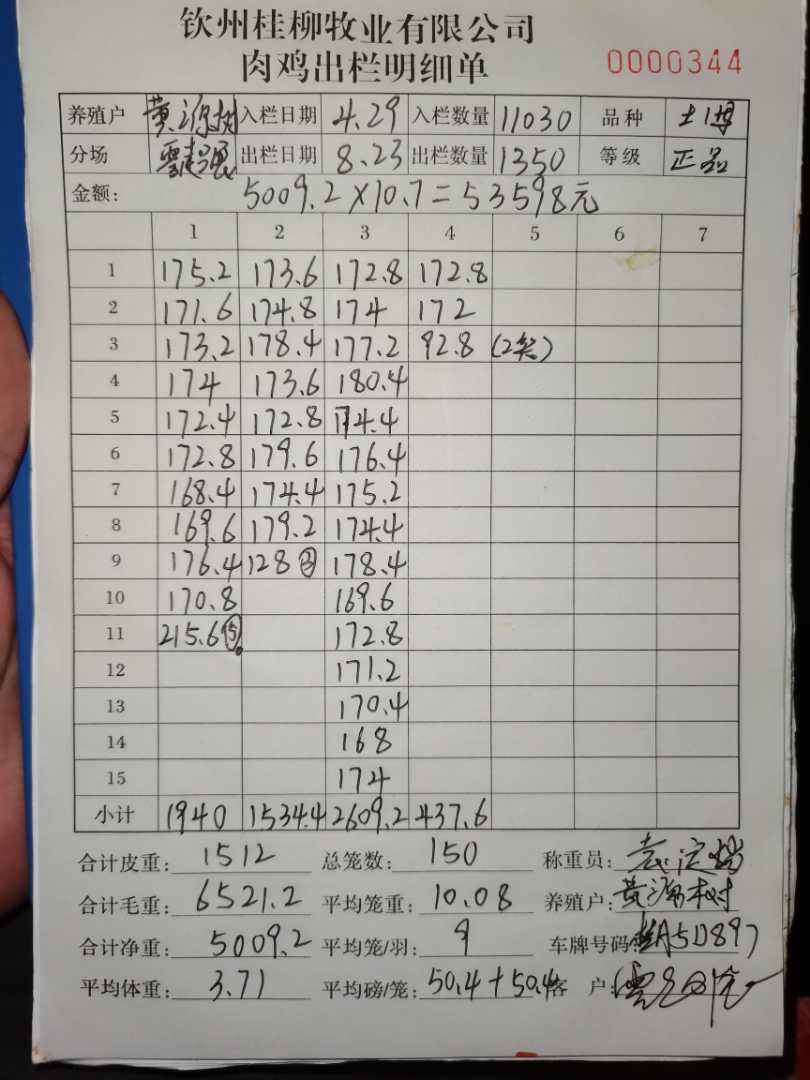 钦州桂柳牧业有限公司
肉鸡出栏明细单 0000344
养殖户 黄源树 入栏日期 4.29 入栏数量 11030 品种 土博
分场 出栏日期 8.23 出栏数量 1350 等级 正品
金额: 5009.2×10.7=53598元
1 2 3 4 5 6 7
1 175.2 173.6 172.8 172.8
2 171.6 174.8 174 172
3 173.2 178.4 177.2 92.8 (2笼)
4 174 173.6 180.4
5 172.4 172.8 174.4
6 172.8 179.6 176.4
7 168.4 174.4 175.2
8 169.6 179.2 174.4
9 176.4 128 ③ 178.4
10 170.8 169.6
11 215.6 ⑤ 172.8
12 171.2
13 170.4
14 168
15 174
小计 1940 1534.4 2609.2 437.6
合计皮重: 1512 总笼数: 150 称重员:
合计毛重: 6521.2 平均笼重: 10.08 养殖户: 黄源树
合计净重: 5009.2 平均笼/羽: 9 车牌号码: A5D897
平均体重: 3.71 平均磅/笼: 50.4+50.4 客 户: